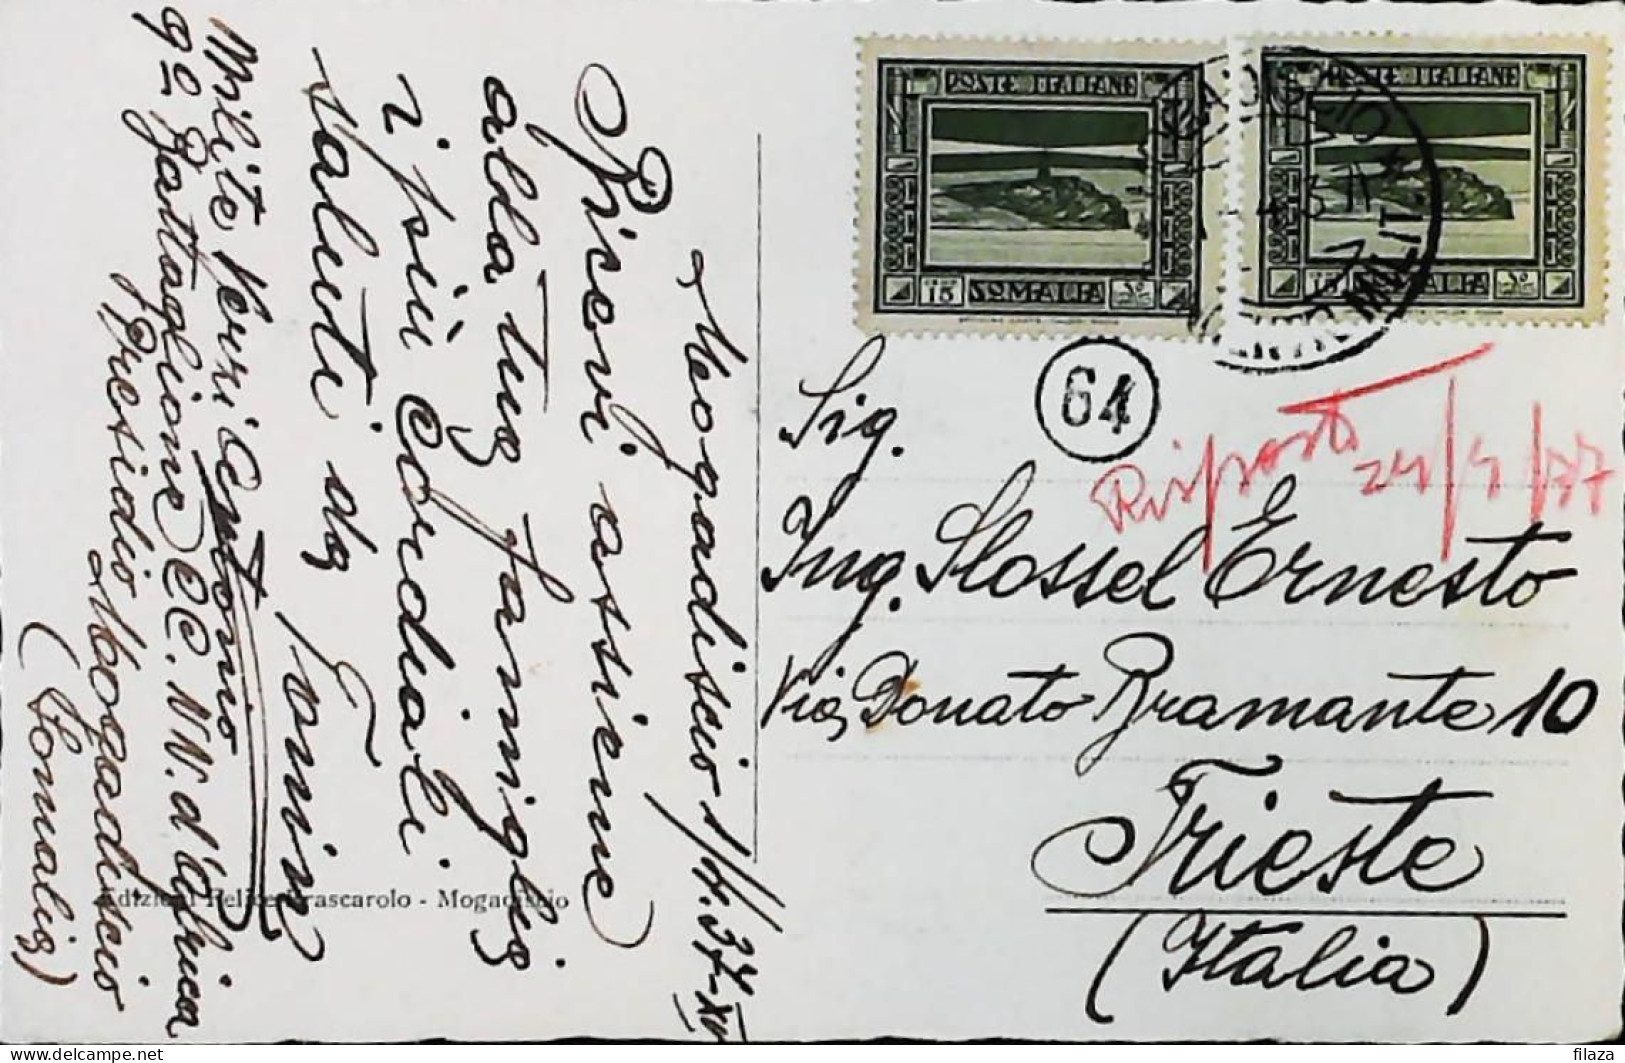 Mogadiscio 1/4.37-XV
Ricevi assieme
alla tua famiglia
i più cordiali
saluti da
Tonin
Milite Verzi Antonio
9º Battaglione CC.NN. d'Africa
Presidio Mogadiscio
(Somalia)
Edizioni Felice Frascarolo - Mogadiscio
POSTE ITALIANE
15 SOMALIA
POSTE ITALIANE
15 SOMALIA
64
Risposto
24/4/37
Sig.
Ing. Slossel Ernesto
Via Donato Bramante 10
Trieste
(Italia)
filaza